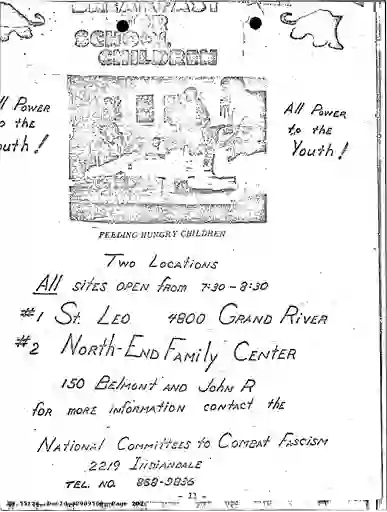 BREAKFAST
FOR
SCHOOL
CHILDREN
All Power
to the
Youth!
All Power
to the
Youth!
FEEDING HUNGRY CHILDREN
Two Locations
All sites open from 7:30-8:30
#1 St. Leo 4800 Grand River
#2 North-End Family Center
150 Belmont and John R
for more information contact the
National Committees to Combat Fascism
2219 Indiandale
TEL. NO. 868-9836
- 13 -
Page 202